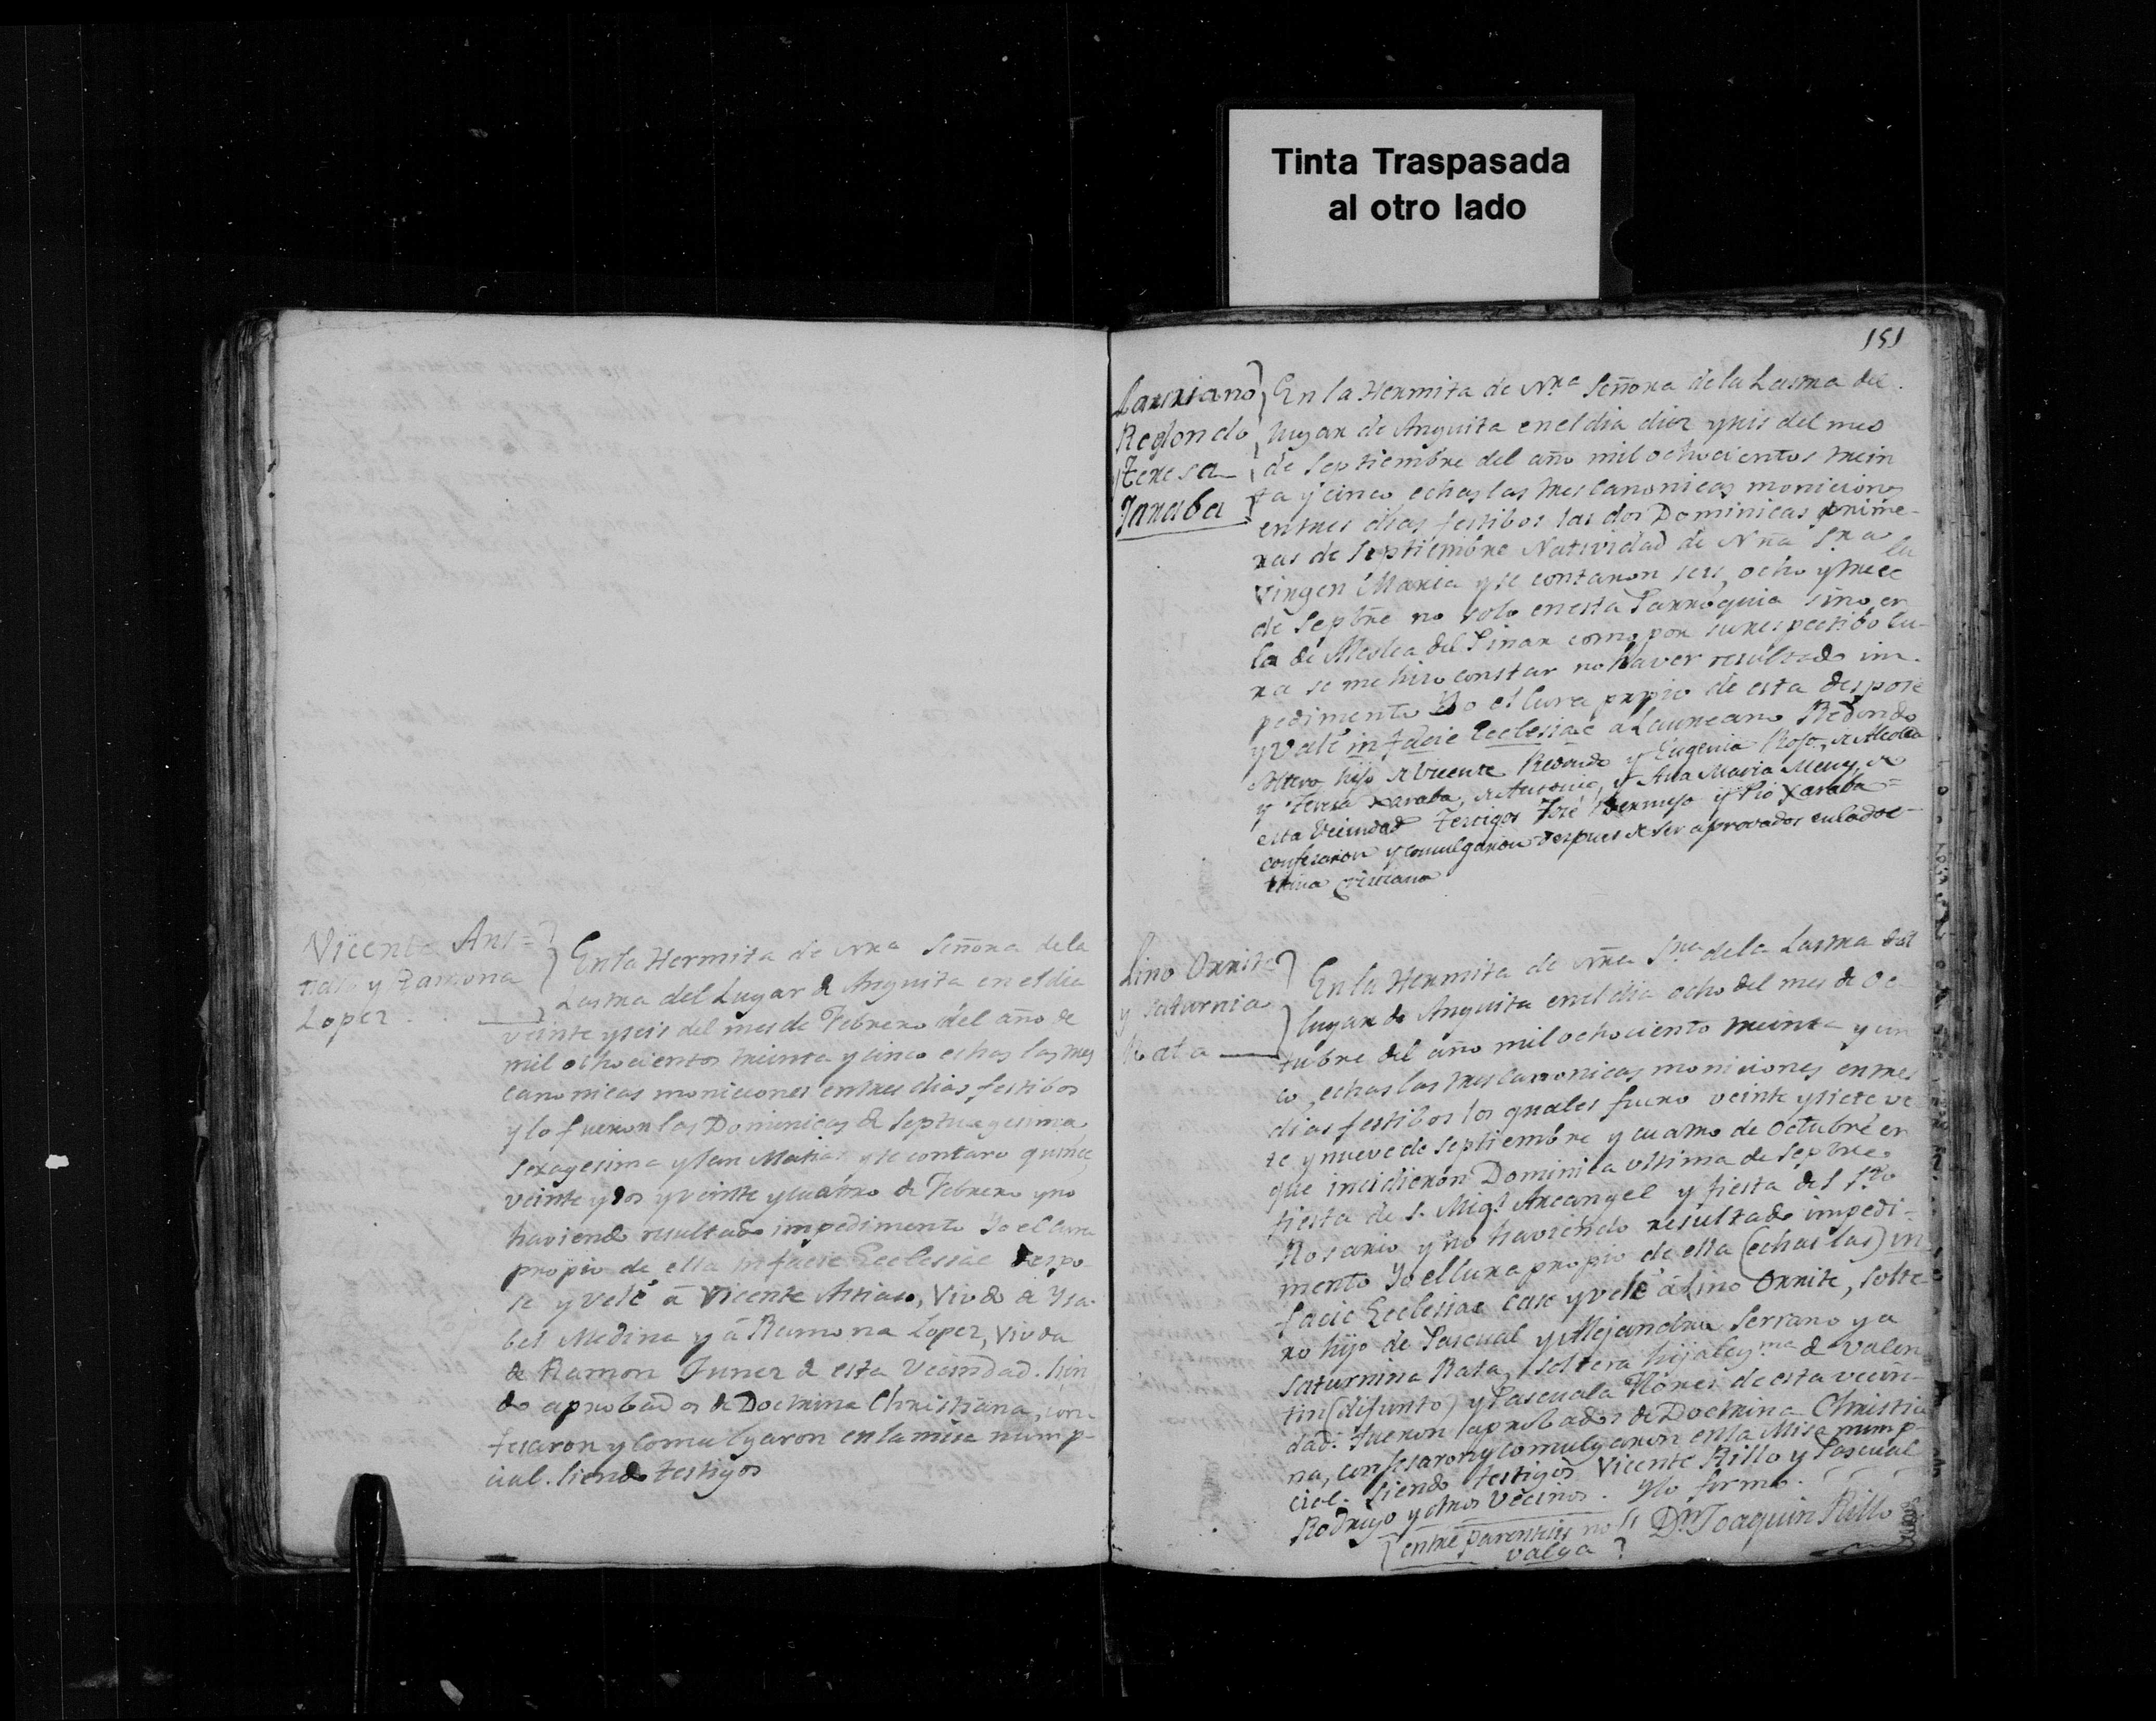 Tinta Traspasada
al otro lado
Vicente Ans=
tas y Ramona
Loper
En la Hermita de Nra Señora de la
Lasma del Lugar d Anguita en el dia
veinte y seis del mes de Febrero del año de
mil ochocientos treinta y cinco echas las tres
canonicas moniciones en tres dias festibos
y lo fueron las Dominicas d Septuagesima
Sexagesima y San Matias y se contaro quince,
veinte y dos y veinte y cuatro de Febrero y no
haviendo resultado impedimento Yo el Cura
propio de ella in facie Ecclesiae despo
se y velé á Vicente, Viudo d Ysa
bel Medina y á Ramona Loper, Viuda
d Ramon Funer d esta Vecindad. Sien
do aprobados d Doctrina Christiana, con
fesaron y Comulgaron en la misa nump-
cial. Siendo testigos
151
Laureano
Redondo
Teresa
Jaraba
En la Hermita de Nra Señora de la Lasma del
lugar de Anguita en el dia diez y seis del mes
de Septiembre del año mil ochocientos trein
ta y cinco echas las tres Canonicas moniciones
en tres dias festibos las dos Dominicas prime-
ras de Septiembre Natividad de Nra Sra
la
Virgen Maria y se contaron seis, ocho y trece
de Sepbre no solo en esta Parroquia sino en
la de Alcolea del Pinar como por su respectibo Cu-
ra se me hizo constar no haver resultado im-
pedimento Yo el Cura propio de esta despose
y Velé in facie Ecclesiae a Laureano Redondo
soltero hijo de Vicente Redondo y Eugenia Rojo, de Alcolea
y Teresa Xaraba, de Antonio, y Ana Maria Meny, de
esta Vecindad Testigos José Bermejo y Pio Xaraba=
confesaron y comulgaron despues de ser aprovados en la doc-
trina Cristiana
Lino Orrite
y Saturnia
Rata
En la Hermita de Nra Sra de la Lasma del
lugar de Anguita en el dia ocho del mes de Oc-
tubre del año mil ochociento treinta y cin
co, echas las tres canonicas moniciones en tres
dias festibos los quales fuero veinte y siete ve
te y nueve de Septiembre y cuatro de Octubre en
que incidieron Dominica ultima de Sepbre
fiesta de S. Migl Arcangel y fiesta del Sto
Rosario y no haviendo resultado impedi-
mento Yo el Cura propio de esta (echas las) in
facie Ecclesiae case y velé á Lino Orrite, solte-
ro hijo de Pascual y Alejandra Serrano y a
Saturnina Rata, soltera hija legma d Valen
tin (difunto) y Pascuala Flores de esta vecin-
dad. Fueron aprobados de Doctrina Christia
na, confesaron y comulgaron en la Misa nump-
cial. Siendo testigos Vicente Rillo y Pascual
Rodrigo y otros Vecinos. Y lo firmo.
entre parentesis no
valga
Dn Joaquin Rillo